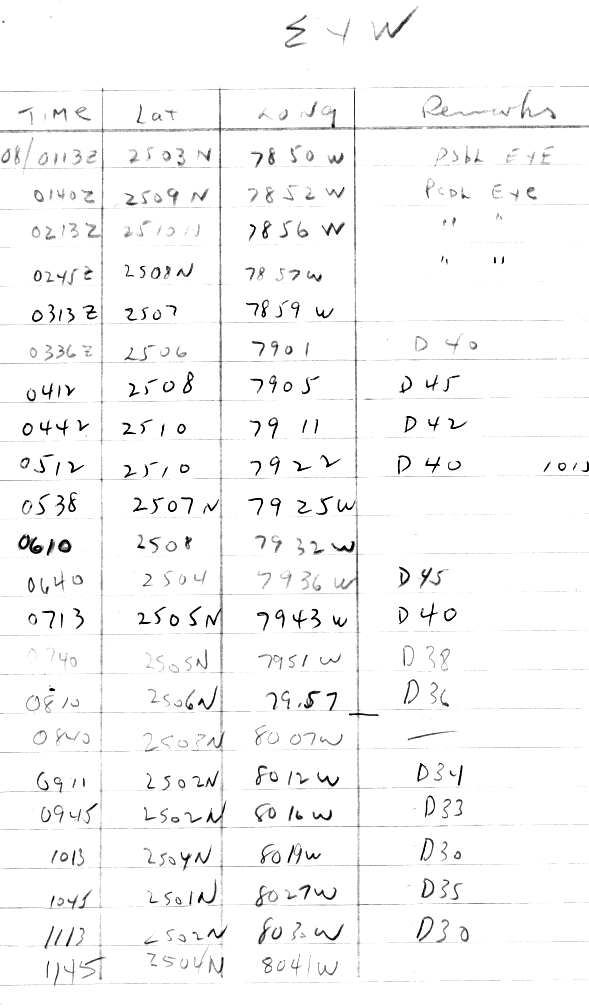 EYW
TIME Lat LONG Remarks
08/0113Z 2503 N 7850 W PSBL EYE
0140Z 2509 N 7852 W PSBL Eye
0213Z 2510 N 7856 W " "
0245Z 2508N 7857W " "
0313Z 2507 7859 W
0336Z 2506 7901 D 40
0412 2508 7905 D45
0442 2510 7911 D42
0512 2510 7922 D40
0538 2507 N 7925W
0610 2508 7932W
0640 2504 7936 W D45
0713 2505N 7943 W D40
0740 2505N 7951 W D38
0810 2506N 79.57 D36
0840 2503N 8007W —
0911 2502N 8012W D34
0945 2502N 8016W D33
1013 2504N 8019W D30
1045 2501N 8027W D35
1113 2502N 803 W D30
1145 2504N 8041W